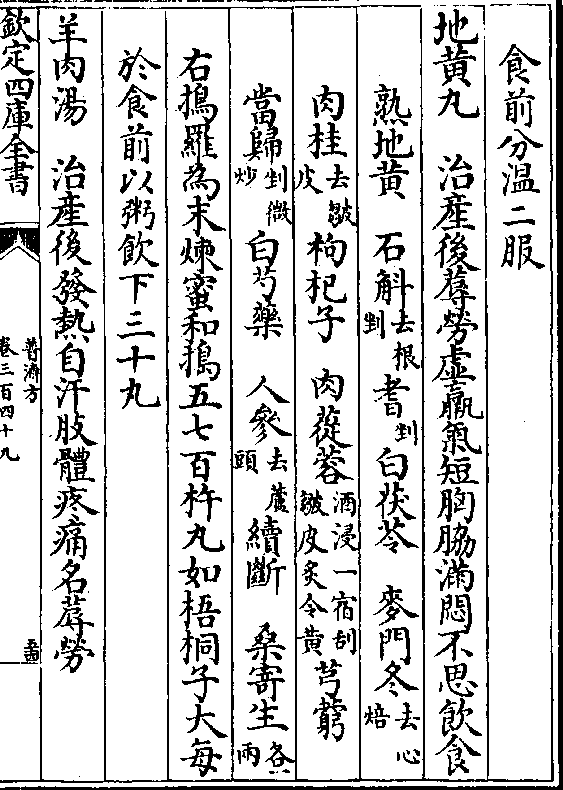 食前分温二服
地黄丸　治産後蓐勞虚羸氣短胸脇滿悶不思飲食
熟地黄　石斛去根剉　耆剉　白茯苓　麥門冬去心焙
肉桂去皺皮　枸杞子　肉蓯蓉酒浸一宿刮皺皮炙令黄　芎藭
當歸剉微炒　白芍藥　人參去蘆頭　續斷　桑寄生各兩
右搗羅為末煉蜜和搗五七百杵丸如梧桐子大每
於食前以粥飲下三十丸
羊肉湯　治産後發熱自汗肢體疼痛名蓐勞
欽定四庫全書
普濟方
卷三百四十九